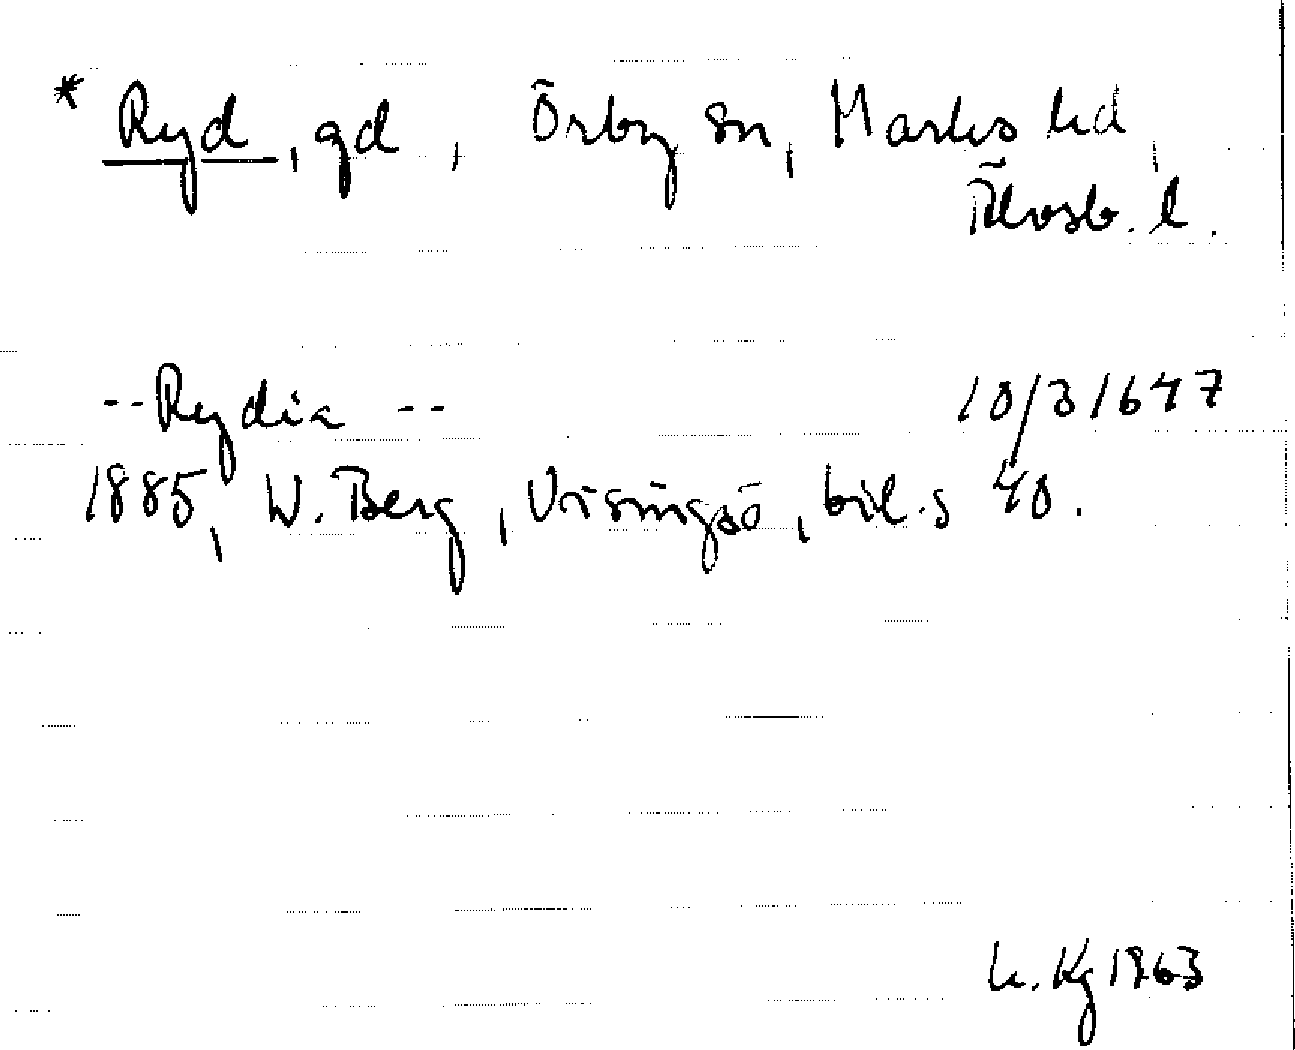 * Ryd, gd, Örby sn, Marks hd,
Älvsb. l.
--Rydia -- 10/3 1647
1885, W. Berg, Visingsö, bil. s 40.
L. Kg 1963